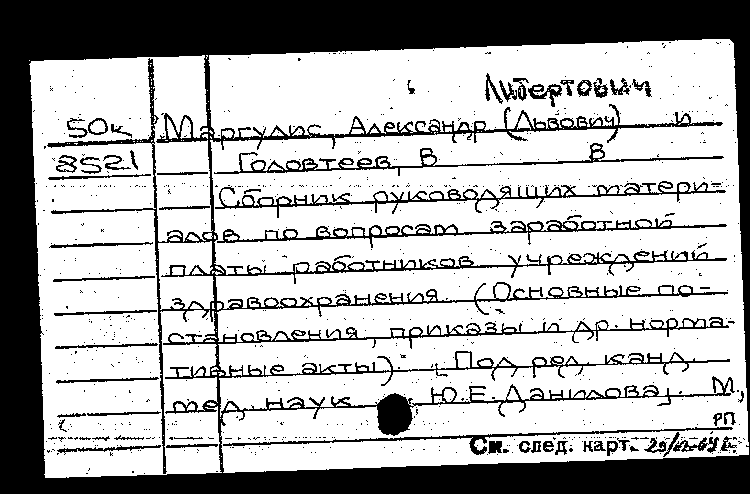 Либертович
50к Маргулис, Александр (Львович) и
8521 Головтеев, В В
Сборник руководящих матери-
алов по вопросам заработной
платы работников учреждений
здравоохранения. (Основные по-
становления, приказы и др. норма-
тивные акты). [Под ред. канд.
мед. наук Ю.Е. Данилова]. М.,
РП
См. след. карт.